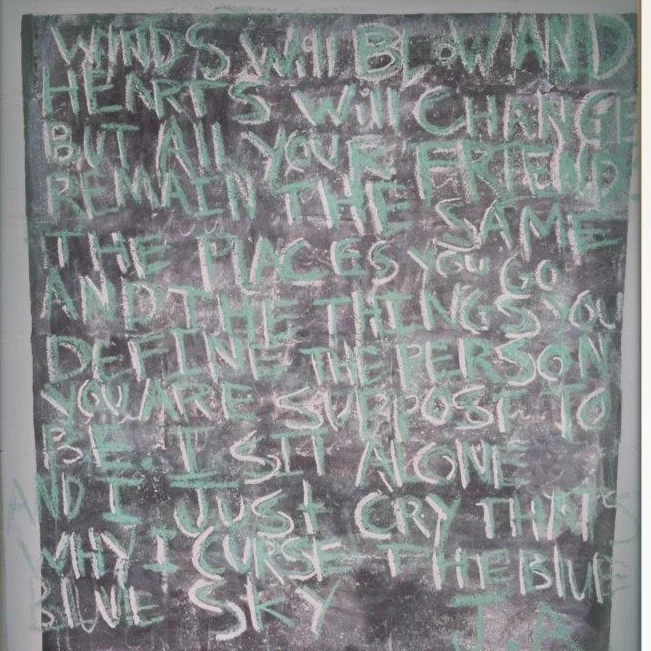 WINDS Will BLOW AND
HEARTS Will CHANGE
BUT All YOUR FRIEND
REMAIN THE SAME
THE PLACES YOU GO
AND THE THINGS YOU
DEFINE THE PERSON
YOU ARE SUPPOST TO
BE. I SIT ALONE
AND I JUST CRY THAT
WHY I CURSE THE BLUE
BLUE SKY
J.A